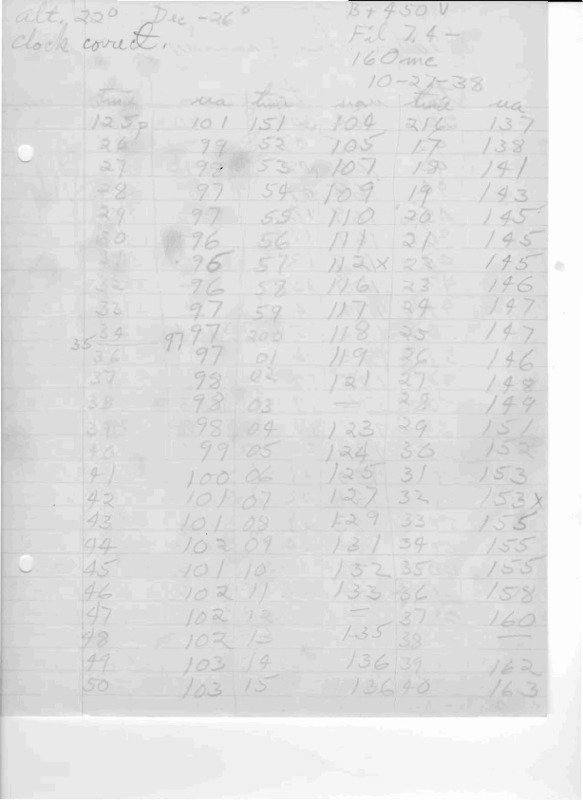 alt. 22° Dec -26° B+ 450 V
clock correct. Fil 7.4-
160 mc
10-27-38
time ua time ua time ua
125p 101 151 104 216 137
26 99 52 105 17 138
27 98 53 107 18 141
28 97 54 109 19 143
29 97 55 110 20 145
30 96 56 111 21 145
31 96 57 112x 22 145
32 96 58 116 23 146
33 97 59 117 24 147
34 97 200 118 25 147
35 97
36 97 01 119 26 146
37 98 02 121 27 148
38 98 03 — 28 149
39 98 04 123 29 151
40 99 05 124 30 152
41 100 06 125 31 153
42 101 07 127 32 153x
43 101 08 129 33 155
44 102 09 131 34 155
45 101 10 132 35 155
46 102 11 133 36 158
47 102 12 — 37 160
48 102 13 135 38 —
49 103 14 136 39 162
50 103 15 136 40 163